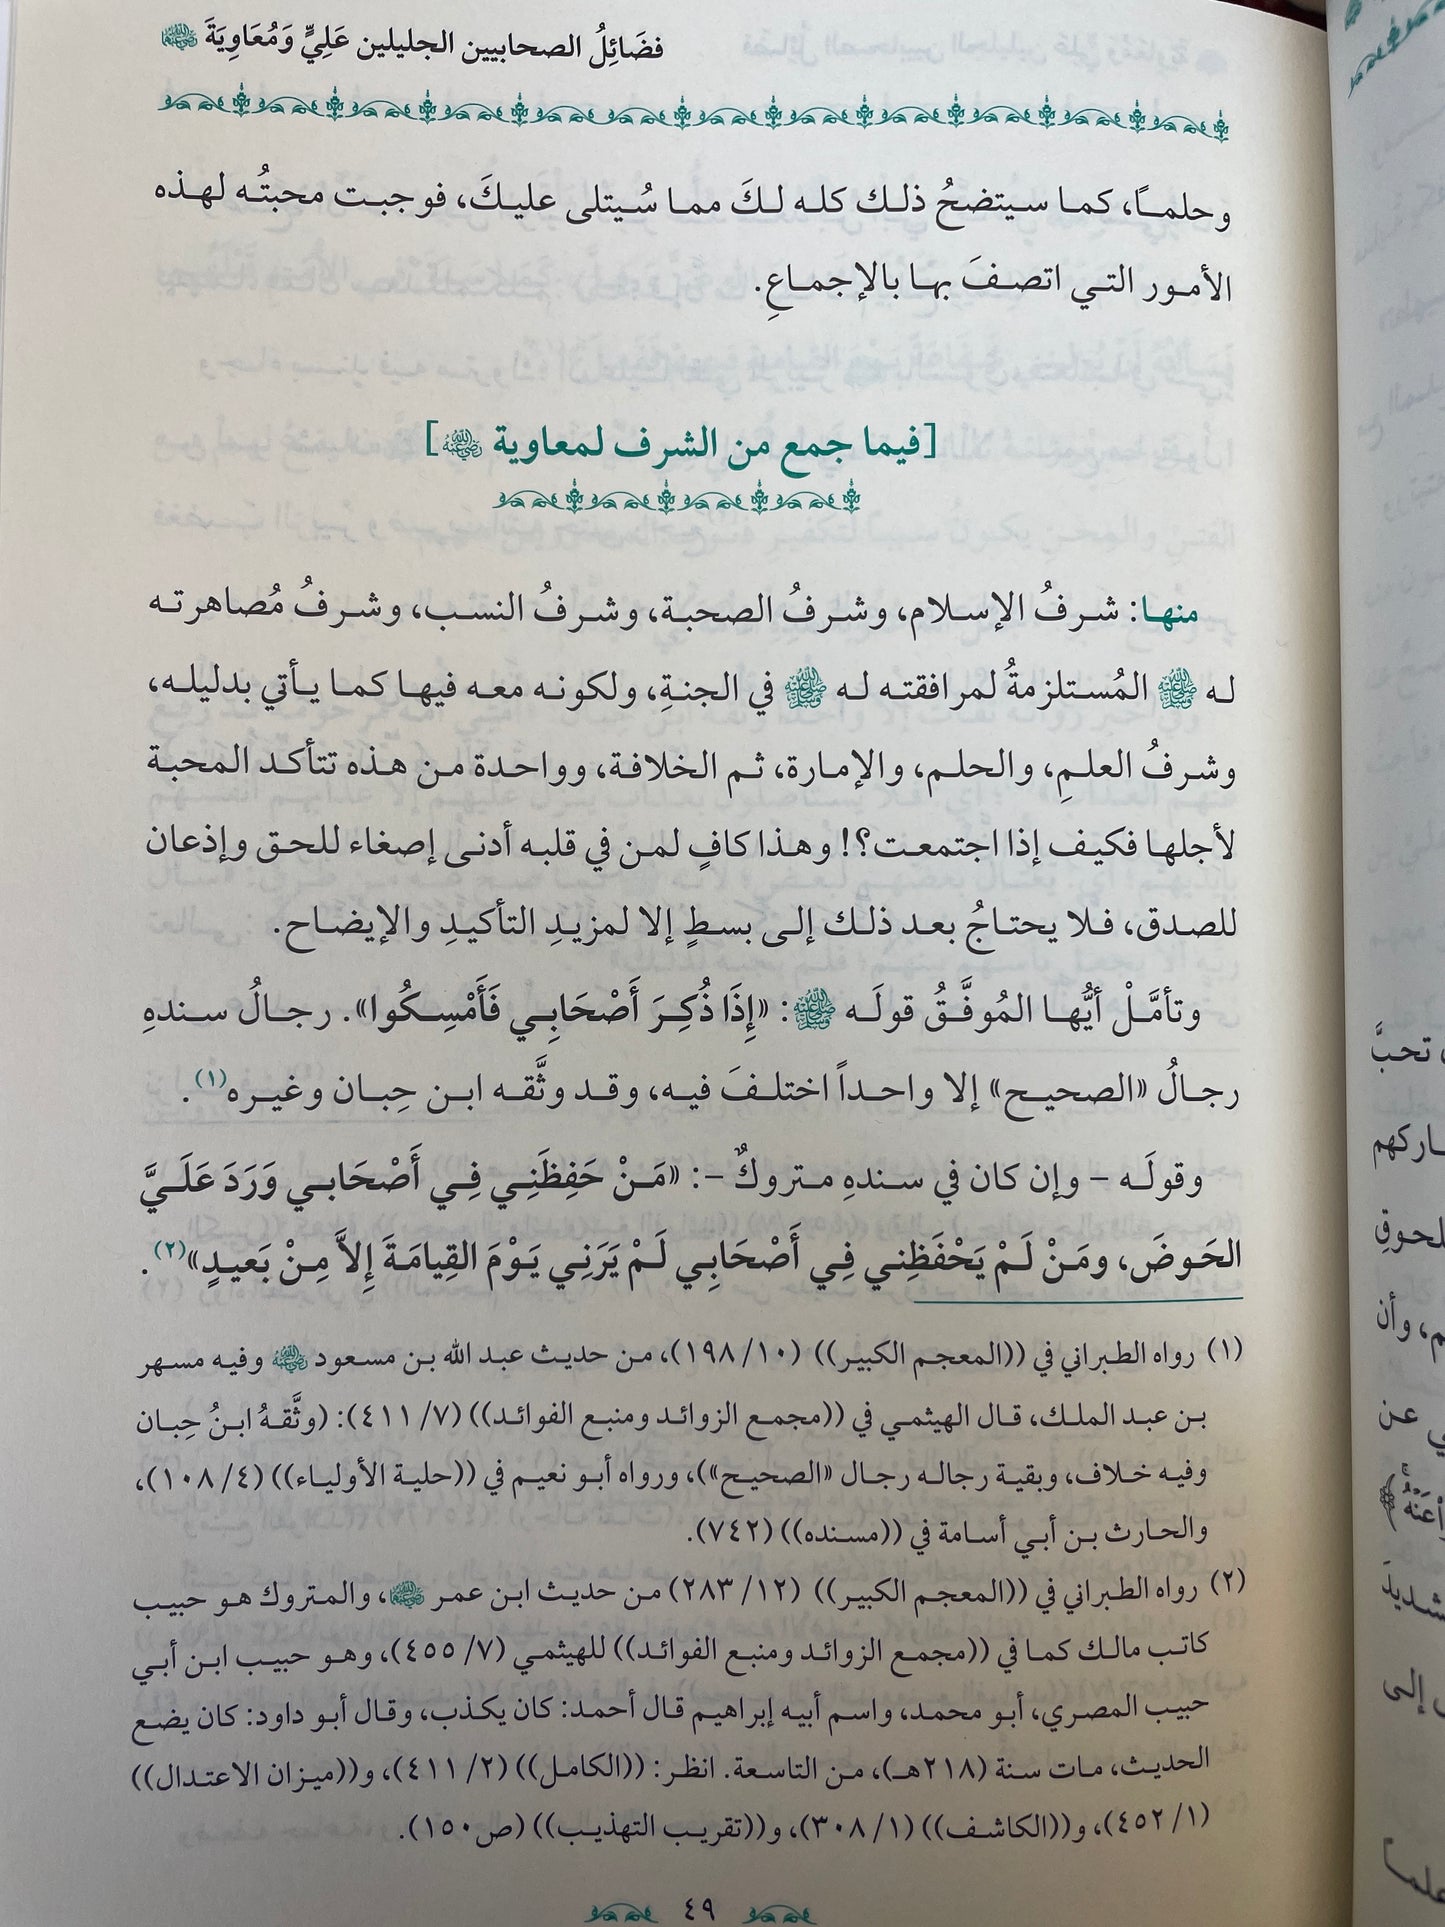 فضَائِلُ الصحابيين الجليلين عَلِيٍّ وَمُعَاوِيَةَ ﵄
وحلمـاً، كمـا سـيتضحُ ذلـك كلـه لـكَ ممـا سُـيتلى عليـكَ، فوجبـت محبتُـه لهـذه
الأمـور التـي اتصـفَ بهـا بالإجمـاعِ.
[فيما جمع من الشرف لمعاوية ﵁]
منهـا: شـرفُ الإسـلام، وشـرفُ الصحبـة، وشـرفُ النسـب، وشـرفُ مُصاهرتـه
لـه ﷺ المُسـتلزمةُ لمرافقتـه لـه ﷺ في الجنـةِ، ولكونـه معـه فيهـا كمـا يـأتي بدليلـه،
وشـرفُ العلـمِ، والحلـم، والإمـارة، ثـم الخلافـة، وواحـدة مـن هـذه تتأكـد المحبـة
لأجلهـا فكيـف إذا اجتمعـت؟! وهـذا كافٍ لمـن في قلبـه أدنـى إصغـاء للحـق وإذعـان
للصـدق، فـلا يحتـاجُ بعـد ذلـك إلـى بسـطٍ إلا لمزيـدِ التأكيـدِ والإيضـاح.
وتأمَّـلْ أيُّهـا المُوفَّـقُ قولَـه ﷺ: «إِذَا ذُكِـرَ أَصْحَابِـي فَأَمْسِـكُوا». رجـالُ سـندهِ
رجـالُ «الصحيـح» إلا واحـداً اختلـفَ فيـه، وقـد وثَّقـه ابـن حِبـان وغيـره(١).
وقولَـه – وإن كان في سـندهِ متـروكٌ –: «مَـنْ حَفِظَنِـي فِـي أَصْحَابـي وَرَدَ عَلَـيَّ
الحَـوضَ، ومَـنْ لَـمْ يَحْفَظِنـي فِـي أَصْحَابِـي لَـمْ يَرَنِـي يَـوْمَ القِيامَـةَ إِلاَّ مِـنْ بَعيـدٍ»(٢).
(١) رواه الطبراني في ((المعجم الكبير)) (١٠/ ١٩٨)، من حديث عبد الله بن مسعود ﵁ وفيه مسهر
بـن عبـد الملـك، قـال الهيثمـي في ((مجمـع الزوائـد ومنبـع الفوائـد)) (٧/ ٤١١): (وثَّقـهُ ابـنُ حِبـان
وفيـه خـلاف، وبقيـة رجالـه رجـال «الصحيـح»)، ورواه أبـو نعيـم في ((حليـة الأوليـاء)) (٤/ ١٠٨)،
والحـارث بـن أبـي أسـامة في ((مسـنده)) (٧٤٢).
(٢) رواه الطبراني في ((المعجم الكبير)) (١٢/ ٢٨٣) من حديث ابن عمر ﵄، والمتروك هو حبيب
كاتـب مالـك كمـا في ((مجمـع الزوائـد ومنبـع الفوائـد)) للهيثمـي (٧/ ٤٥٥)، وهـو حبيـب ابـن أبـي
حبيب المصري، أبو محمد، واسم أبيه إبراهيم قال أحمد: كان يكذب، وقال أبو داود: كان يضع
الحديـث، مـات سـنة (٢١٨هـ)، مـن التاسـعة. انظـر: ((الكامـل)) (٢/ ٤١١)، و((ميـزان الاعتـدال))
(١/ ٤٥٢)، و((الكاشـف)) (١/ ٣٠٨)، و((تقريـب التهذيـب)) (ص١٥٠).
٤٩